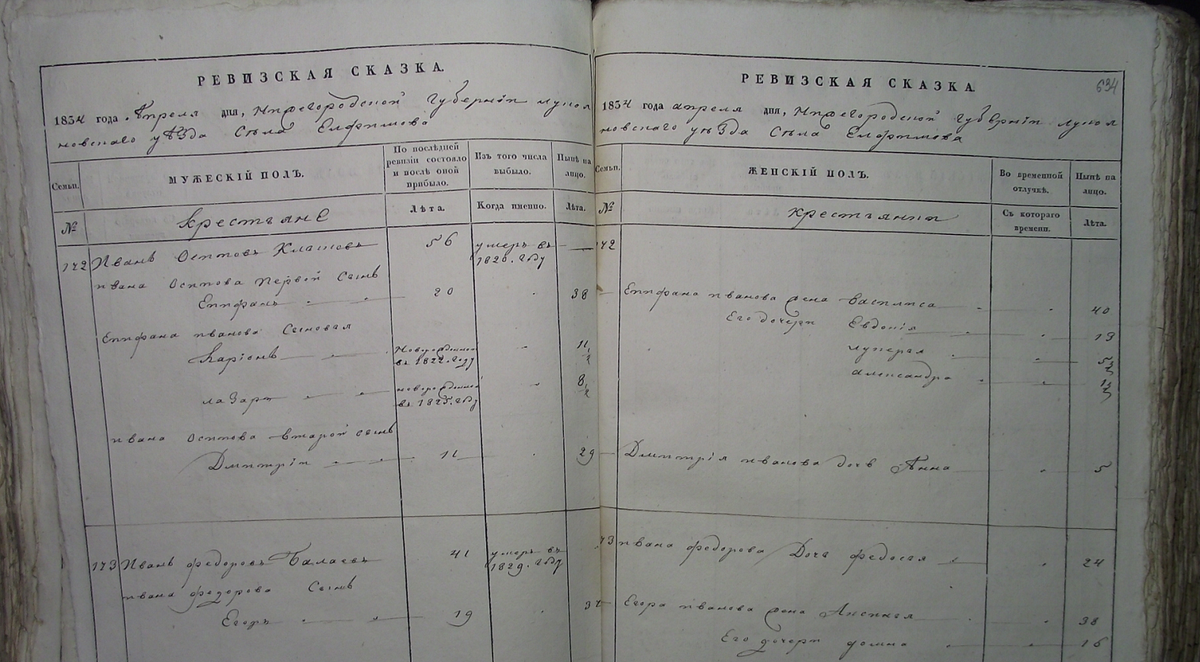 РЕВИЗСКАЯ СКАЗКА.
1834 года Апреля дня, Нижегородской губернiи лукоя
новскаго уѣзда Села Елфимова
Семьи.
МУЖЕСКIЙ ПОЛЪ.
По послѣдней
ревизiи состояло
и послѣ оной
прибыло.
Изъ того числа
выбыло.
Нынѣ на
лицо.
№
Крестьяне
Лѣта.
Когда именно.
Лѣта.
172 Иванъ Осиповъ 56 умеръ въ
1826. году
ивана Осипова первой Сынъ
Епифанъ 20 38
Епифана иванова Сыновья
Карiонъ Новорожденной
въ 1822. году 11 1/2
лазарь новорожденной
въ 1825. году 8 1/2
ивана Осипова второй сынъ
Дмитрiй 11 29
173 Иванъ федоровъ Балаевъ 41 умеръ въ
1829. году
ивана федорова Сынъ
Егоръ 19 37
634
РЕВИЗСКАЯ СКАЗКА.
1834 года апреля дня, Нижегородской губернiи лукоя
новскаго уѣзда Села Елфимова
Семьи.
ЖЕНСКIЙ ПОЛЪ.
Во временной
отлучкѣ.
Нынѣ на
лицо.
№
крестьянки
Съ котораго
времени.
Лѣта.
172
Епифана иванова жена василиса 40
Его дочери Евдокiя 13
лукерья 5
александра
Дмитрiя иванова дочь Анна 5
173 ивана федорова Дочь федосья 24
Егора иванова жена 38
Его дочери 16